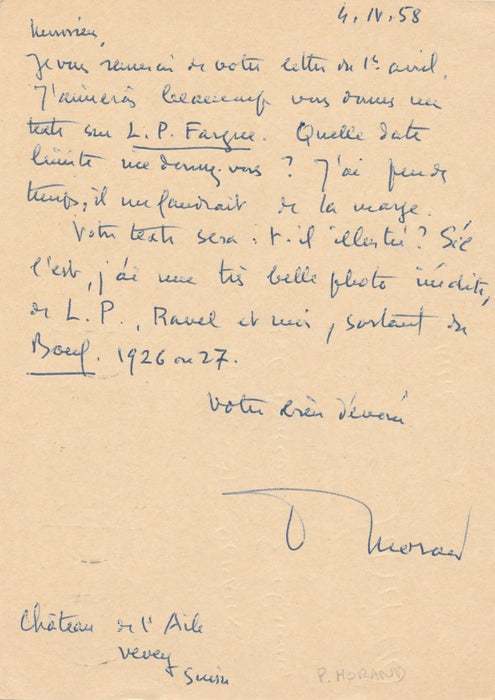 4. IV. 58
Monsieur,
Je vous remercie de votre lettre du 1er avril.
J'aimerais beaucoup vous donner un
texte sur L. P. Fargue. Quelle date
limite me donnez-vous ? J'ai peu de
temps, il me faudrait de la marge.
Votre texte sera-t-il illustré ? S'il
l'est, j'ai une très belle photo inédite,
de L. P., Ravel et moi, sortant du
Boeuf. 1926 ou 27.
Votre bien dévoué
P Morand
Château de l'Aile
Vevey
Suisse
P. MORAND